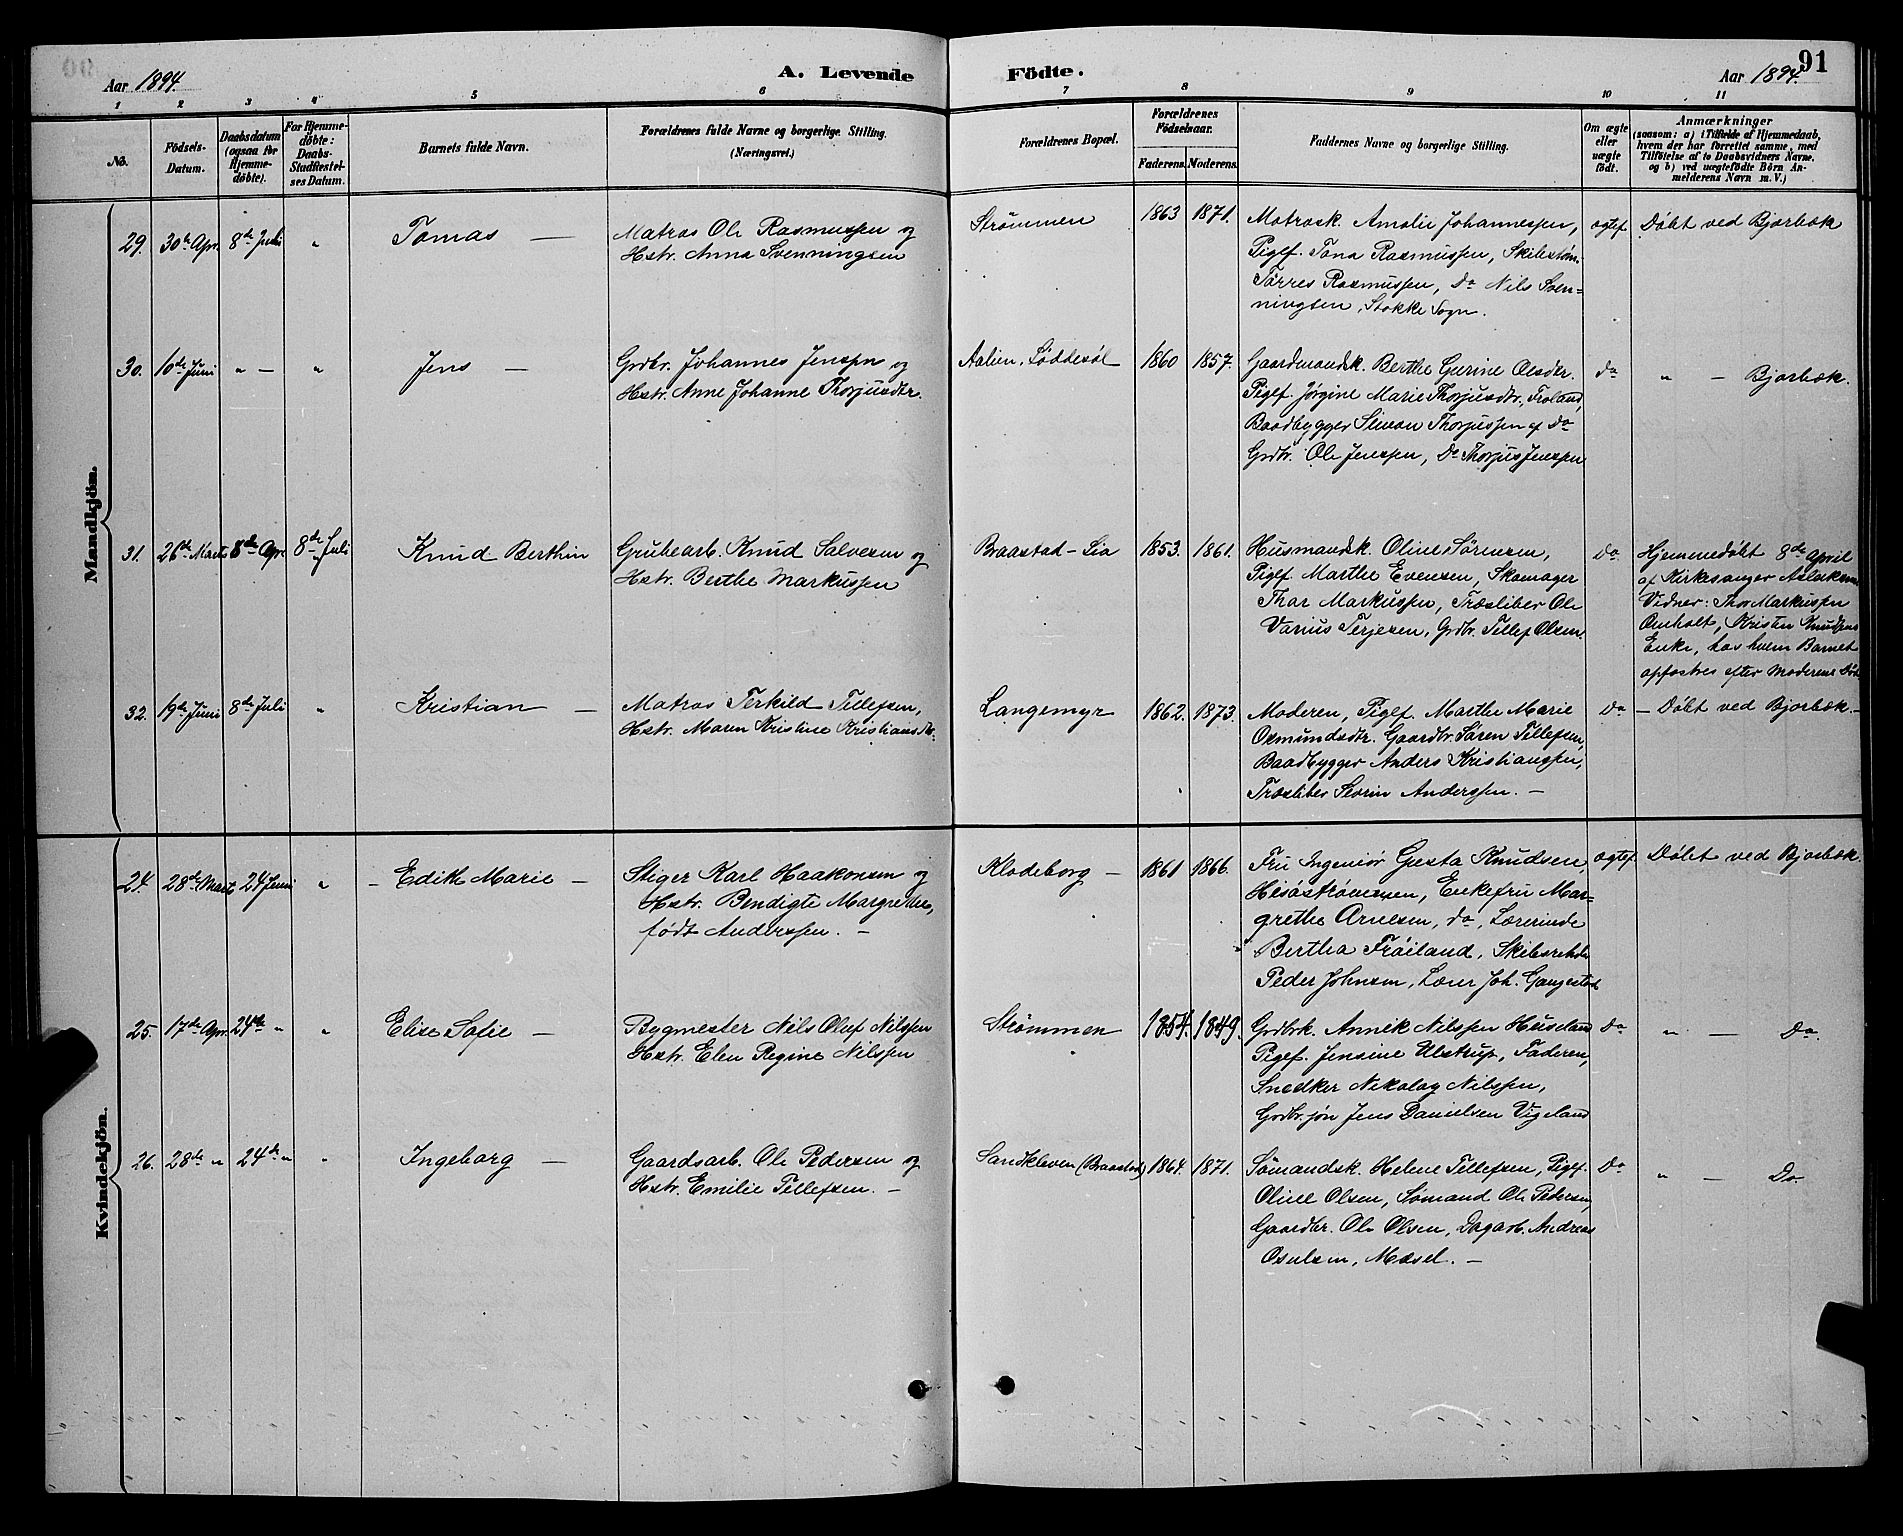 91
Aar 1894. A. Levende Födte. Aar 1894.
1 2 3 4 5 6 7 8 9 10 11
No.
Födsels-
Datum.
Daabsdatum
(ogsaa for
Hjemme-
döbte).
For Hjemme-
döbte:
Daabs-
Stadfæstel-
ses Datum.
Barnets fulde Navn.
Forældrenes fulde Navne og borgerlige Stilling.
(Næringsvei.)
Forældrenes Bopæl.
Forældrenes
Födselsaar.
Faderens. Moderens.
Faddernes Navne og borgerlige Stilling.
Om ægte
eller
uægte
födt.
Anmærkninger
(saasom: a) i Tilfælde af Hjemmedaab,
hvem der har forrettet samme, med
Tilföielse af to Daabsvidners Navne,
og b) ved uægtefödte Börn An-
melderens Navn m. V.)
Mandkjön.
29. 30te Apr. 8de Juli " Tomas —
Matros Ole Rasmussen og
Hstr. Anna Svenningsen
Strømmen 1863 1871.
Matrosk. Amalie Johannessen,
Pigef. Tona Rasmussen, Skibstøm.
Tørres Rasmussen, Do Nils Sven=
ningsen, Stokke Sogn.
ægtef. Døbt ved Bjorbæk
30. 10de Juni " — " Jens —
Grdbr. Johannes Jenssen og
Hstr. Anne Johanne Thorjusdtr.
Aalien, Løddesøl 1860 1857.
Gaardmandsk. Berthe Gurine Olsdtr.
Pigef. Jørgine Marie Thorjusdtr., Froland,
Baadbygger Simon Thorjussen af Do
Grdbr. Ole Jenssen, Do Thorjus Jenssen
Do " — Bjorbæk.
31. 26de Marts 8de Apr. 8de Juli Knud Berthin
Grubearb. Knud Salvesen og
Hstr. Berthe Markussen
Braastad-Lia 1853. 1861.
Husmandsk. Oline Sørensen,
Pigef. Marthe Evensen, Skomager
Thor Markussen, Træsliber Ole
Varius Terjesen, Grdbr. Tellef Olsen
Do Hjemmedøbt 8de April
af Kirkesanger Aslaksen
Vidner: Thor Markussen
Omholt, Kristen Knudsens
Enke, hos hvem Barnet
opfostres efter Moderens Død
32. 19de Juni 8de Juli " Kristian —
Matros Terkild Tellefsen,
Hstr. Maren Kristine Kristiansdtr.
Langemyr 1862. 1873.
Moderen, Pigef. Marthe Marie
Osmundsdtr. Gaardbr. Søren Tellefsen,
Baadbygger Anders Kristianssen,
Træsliber Severin Anderssen. —
Do — Døbt ved Bjorbæk. —
Kvindekjön.
24. 28de Mart 24 Juni " — Edith Marie —
Stiger Karl Haakonsen og
Hstr. Bendigte Margrethe,
født Anderssen. —
Klodeborg — 1861 1866.
Fru Ingeniør Gusta Knudsen,
Enkefru Mar=
grethe Arnesen, Do, Lærerinde
Bertha Frøiland, Skibsreder
Peder Johnsen, Lærer Joh. Gangestad
ægtef. Døbt ved Bjorbæk.
25. 17de Apr. 24de " " Elise Sofie —
Bygmester Nils Oluf Nilssen
Hstr. Elen Regine Nilssen
Strømmen 1854. 1849.
Grdbrk. Annik Nilssen Huseland
Pigef. Jensine Ulstrup, Faderen,
Snedker Nikolay Nilssen,
Grdbr.søn Jens Danielsen Vigeland
Do " — Do.
26. 28de " 24de " " Ingeborg —
Gaardsarb. Ole Pedersen og
Hstr. Emilie Tellefsen. —
Sandkleven (Braastad) 1864. 1871.
Sømandsk. Helene Tellefsen, Pigef.
Oline Olsen, Sømand Ole Pedersen,
Gaardbr. Ole Olsen, Dagarb. Andreas
Osulsen, Mæsel. —
Do " — Do